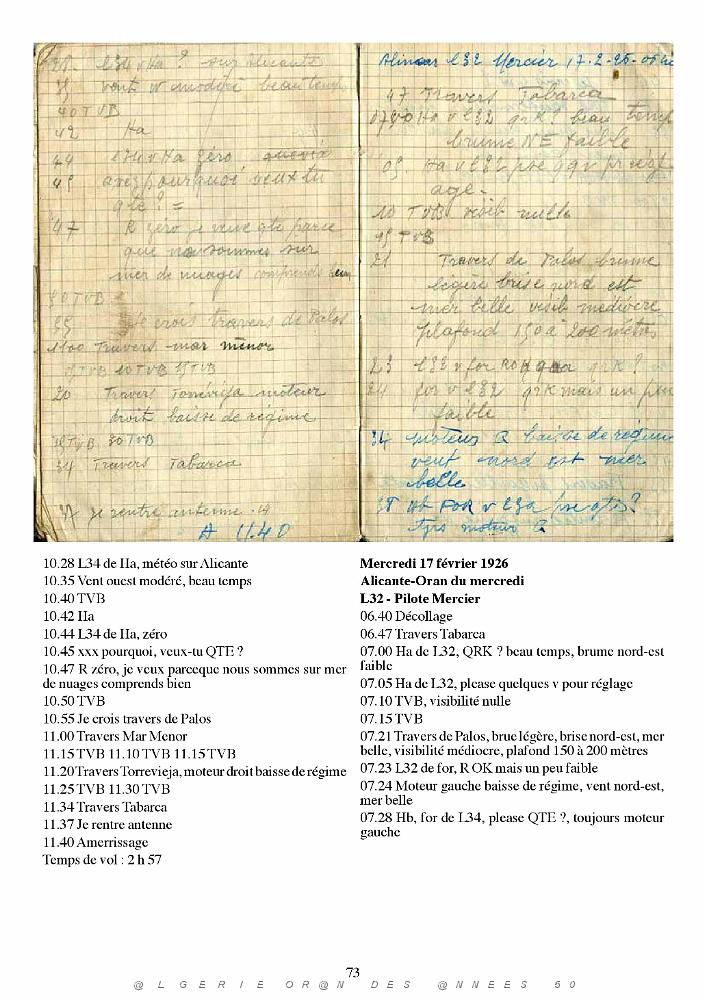 28. L34 v Ha ? sur Alicante
35 vent W modéré beau temps
40 TVB
42 Ha
44 L34 v Ha zéro
45 pourquoi veux tu
qte ? =
47 R zéro je veux qte parce
que nous sommes sur
mer de nuages comprends bien
50 TVB
55 je crois travers de Palos
1100 Travers mar menor
TVB 10 TVB 15 TVB
20 Travers moteur
droit baisse de régime
25 TVB 30 TVB
34 Travers Tabarca
37 je rentre antenne
A 11.40
L32 Mercier 17-2-26
47 Travers Tabarca
Ha v L32 qrk ? beau temps
brume NE faible
05. Ha v L32 pse qq v pr régl
age -
10 TVB visib nulle
15 TVB
21 Travers de Palos brume
légère brise nord est
mer belle visib médiocre
plafond 150 à 200 mètres
23 L32 v for ROK qrk ?
24 for v L32 qrk mais un peu
faible
34 moteur G baisse de régime
vent nord est mer
belle
38 Hb FOR v L32 pse qte ?
tjrs moteur G
10.28 L34 de Ha, météo sur Alicante
10.35 Vent ouest modéré, beau temps
10.40 TVB
10.42 Ha
10.44 L34 de Ha, zéro
10.45 xxx pourquoi, veux-tu QTE ?
10.47 R zéro, je veux parceque nous sommes sur mer
de nuages comprends bien
10.50 TVB
10.55 Je crois travers de Palos
11.00 Travers Mar Menor
11.15 TVB 11.10 TVB 11.15 TVB
11.20 Travers Torrevieja, moteur droit baisse de régime
11.25 TVB 11.30 TVB
11.34 Travers Tabarca
11.37 Je rentre antenne
11.40 Amerrissage
Temps de vol : 2 h 57
Mercredi 17 février 1926
Alicante-Oran du mercredi
L32 - Pilote Mercier
06.40 Décollage
06.47 Travers Tabarca
07.00 Ha de L32, QRK ? beau temps, brume nord-est
faible
07.05 Ha de L32, please quelques v pour réglage
07.10 TVB, visibilité nulle
07.15 TVB
07.21 Travers de Palos, brue légère, brise nord-est, mer
belle, visibilité médiocre, plafond 150 à 200 mètres
07.23 L32 de for, R OK mais un peu faible
07.24 Moteur gauche baisse de régime, vent nord-est,
mer belle
07.28 Hb, for de L34, please QTE ?, toujours moteur
gauche
73
@ L G E R I E   O R @ N   D E S   @ N N E E S   5 0